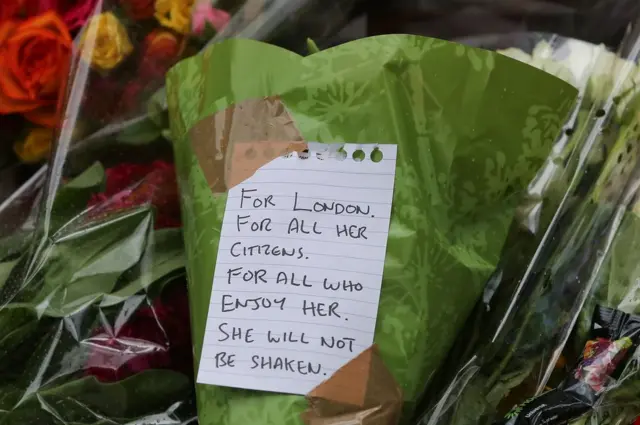 FOR LONDON.
FOR ALL HER
CITIZENS.
FOR ALL WHO
ENJOY HER.
SHE WILL NOT
BE SHAKEN.